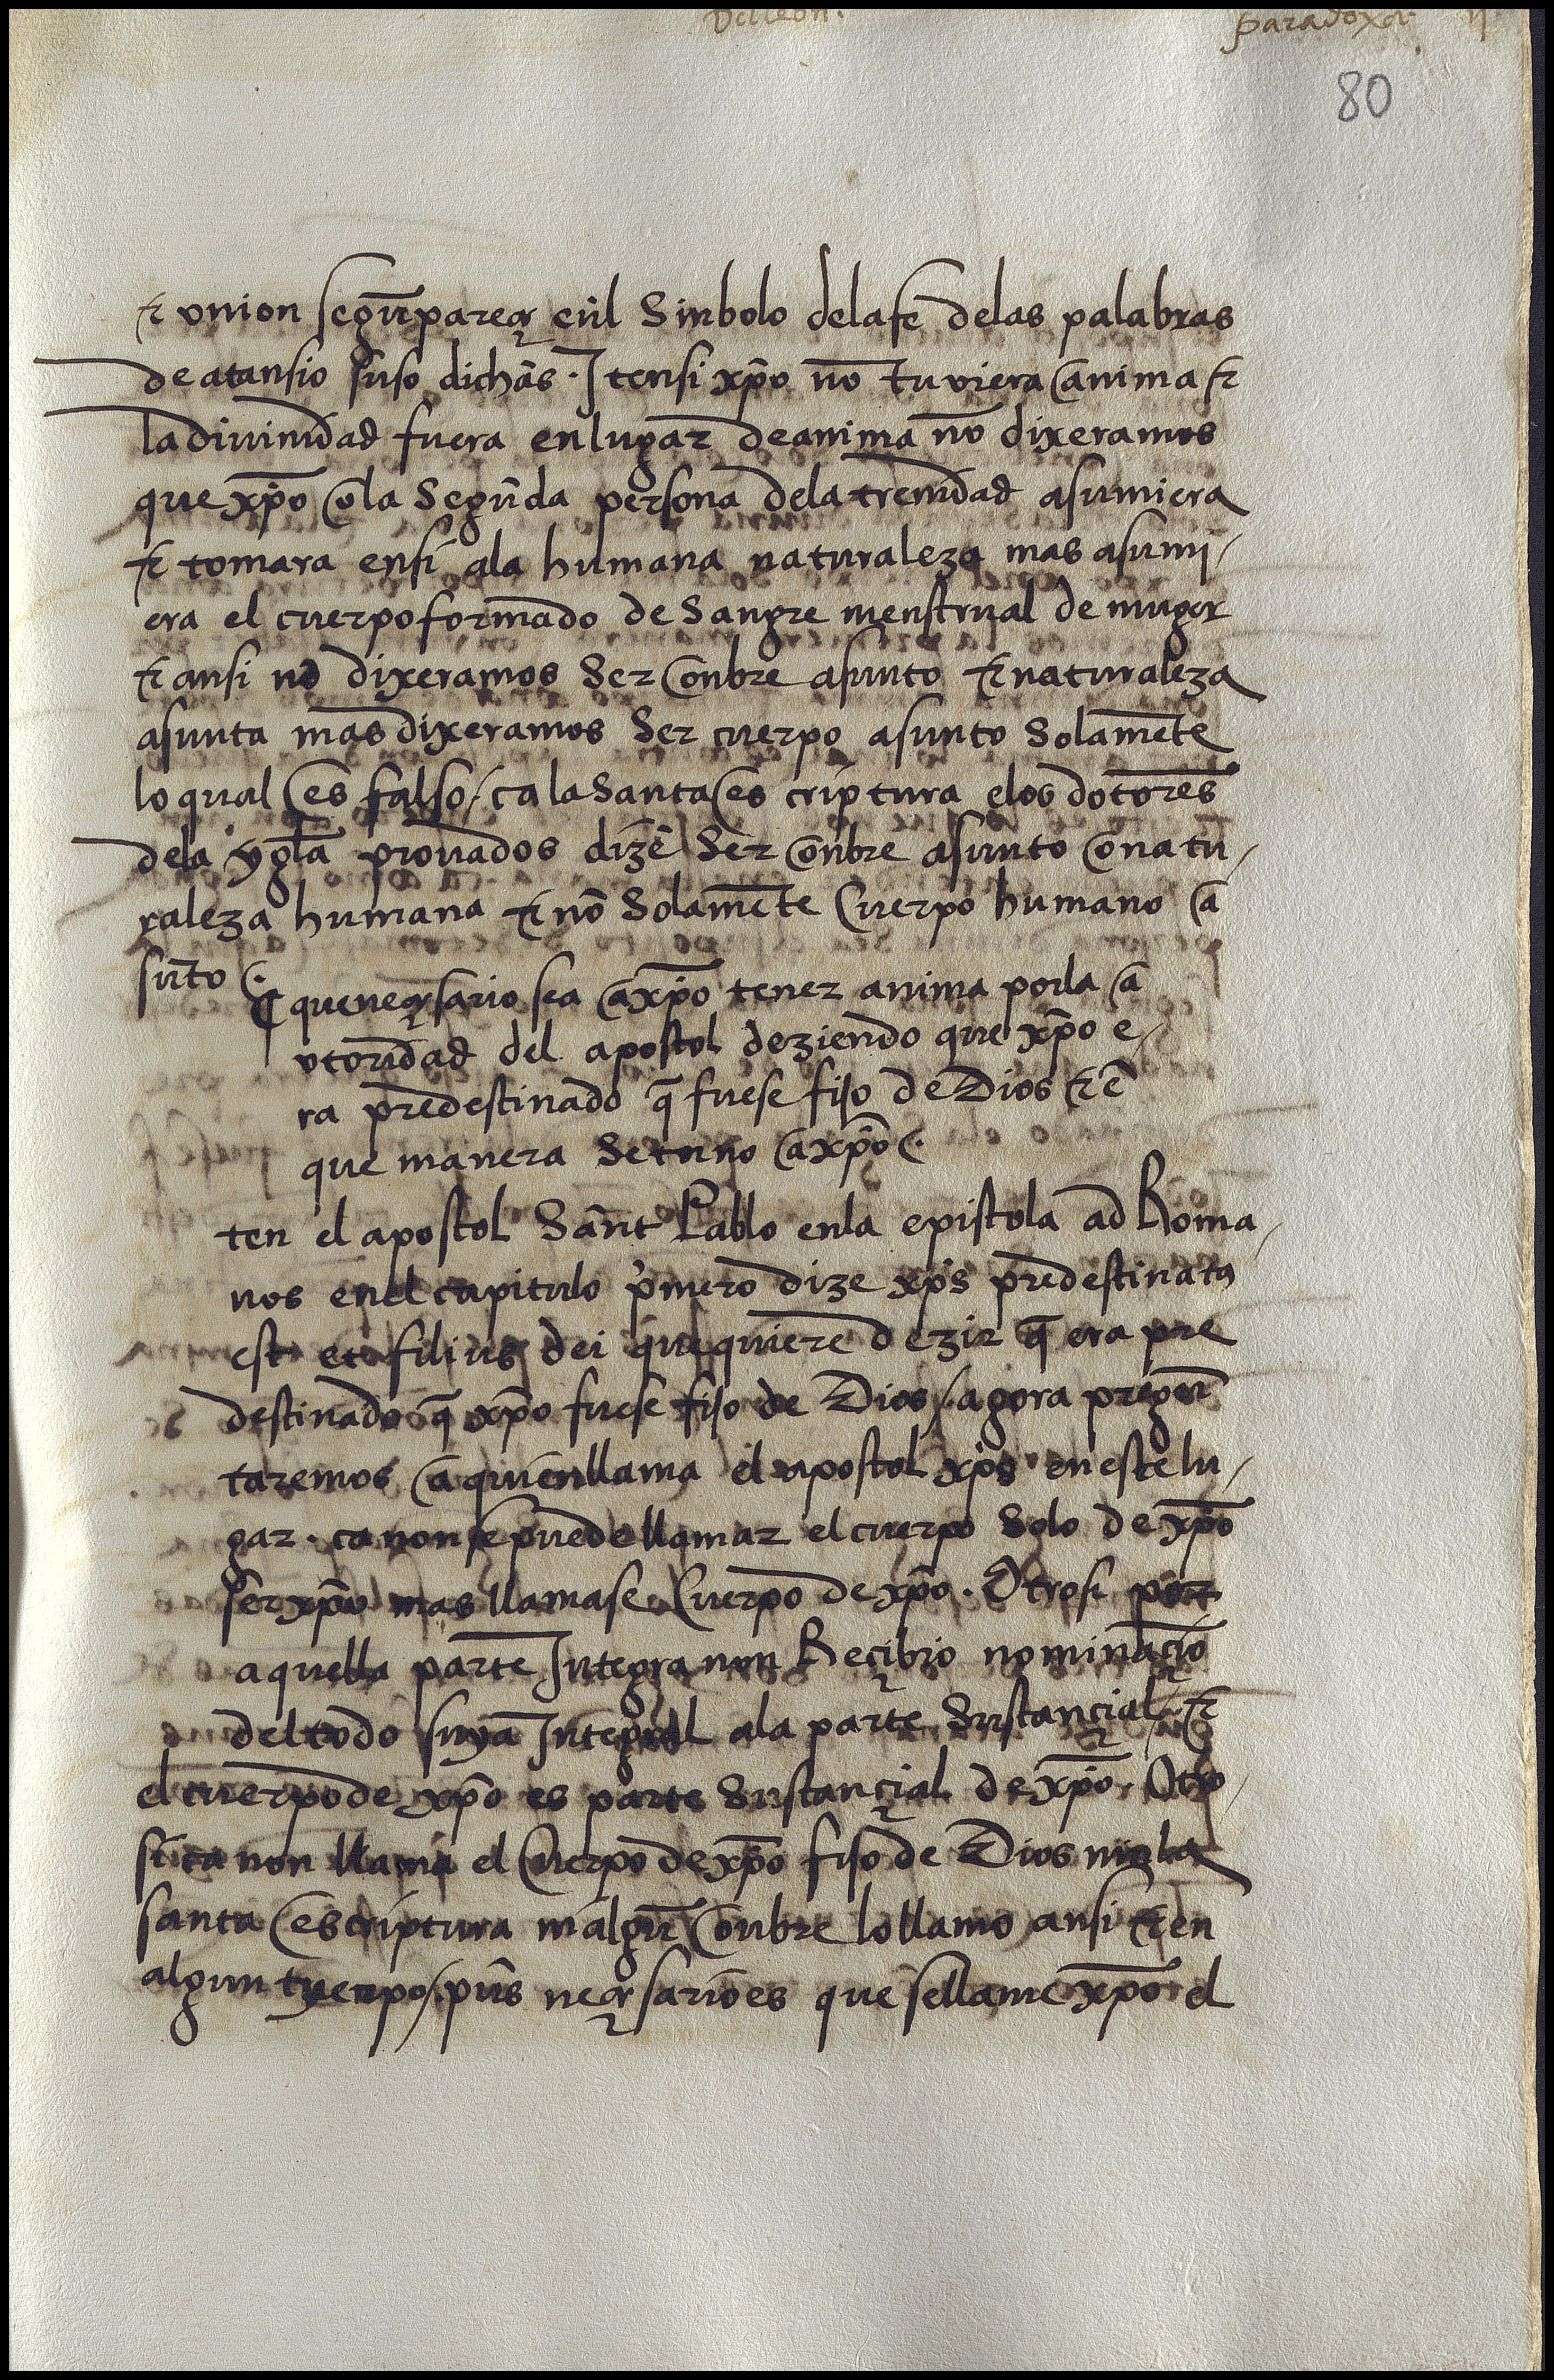 Del leon.
paradoxa.
80
⁊ vnion segũ pareçe enl Sinbolo dela fe delas palabras
de atansio suso dichas. Iten si xp̃o nõ tuviera anima ⁊
la diuinidad fuera en lugar de anima nõ dixeramos
que xp̃o o la Segũda persona dela trenidad asumiera
⁊ tomara en si ala humana naturaleza mas asumi/
era el cuerpo formado de Sangre menstrual de muger
⁊ ansi no dixeramos Ser onbre asunto ⁊ naturaleza
asunta mas dixeramos Ser cuerpo asunto Solamẽte
lo qual es falso / ca la Santa escriptura elos dotores
dela ygl̃a prouados dizẽ Ser onbre asunto o natu/
raleza humana ⁊ nõ Solamẽte Cuerpo humano a
sũto
¶ que neçesario sea a xp̃o tener anima por la a
vtoridad del apostol deziendo que xp̃o e/
ra predestinado q̃ fuese fijo de Dios ⁊ ẽ
que manera Se tuuo a xp̃o
ten el apostol Sant Pablo enla epistola ad Roma/
nos enel capitulo p̃mero dize xp̃s predestinatꝰ
est et filius dei que quiere dezir q̃ era pre
destinado q̃ xp̃o fuese fijo de Dios / agora pregũ
taremos a quien llama el apostol xp̃s en este lu/
gar. ca non se puede llamar el cuerpo Solo de xp̃o
ser xp̃o mas llamase Cuerpo de xp̃o. Otrosi por
aquella parte Integra non Reçibio nominaçiõ
del todo suya Integral ala parte Sustançial ⁊
el cuerpo de xp̃o es parte Sustançial de xp̃o. Otro/
si ca non llama el Cuerpo de xp̃o fijo de Dios ni la
santa escriptura ni algũ onbre lo llamo ansi ⁊ en
algun tyenpo /. pũs neçesario es que se llame xp̃o el